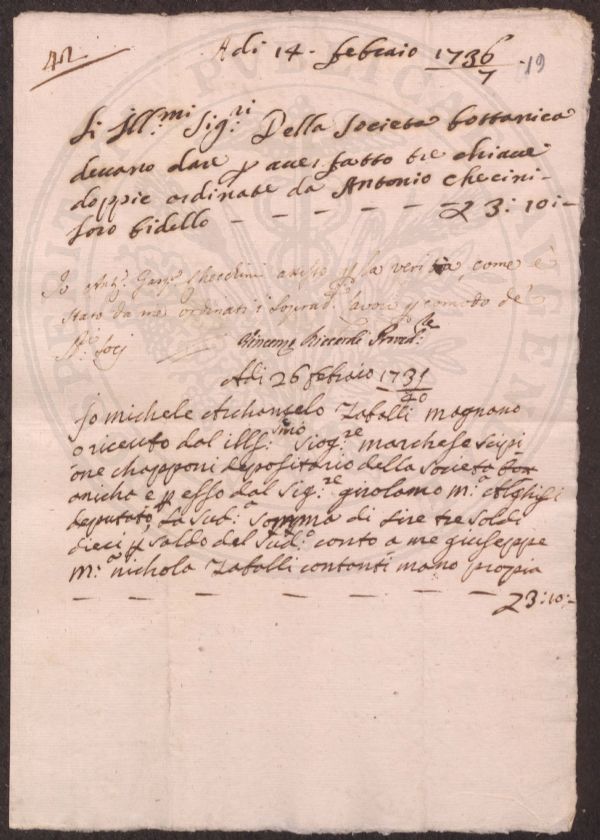 42
Adi 14 - febraio 1736/7
19
Li Ill.mi Sig.ri Della Societa bottanica
devano dare p aver fatto tre chiave
doppie ordinate da Antonio Checini -
loro bidello - - - - - - £ 3: 10:-
Io Ant.o Gasp.o Checchini attesto p la verità, come è
stato da me ordinati i soprad.i lavori p comodo de
SS.i Socj
Vincenzo Riccardi Provved.re
Adi 26 febraio 1739/40
Io michele Archangelo Zafalli magnano
o riceuto dal Ills.simo Siog.re marchese scipi
one chapponi depositario della Societa bot
anicha e p esso dal Sig.re girolamo m.a Alghisi
deputato, La Sud.a Somma di lire tre soldi
dieci p saldo del Sud.o conto a me giuseppe
m.a nichola Zafalli contanti mano propia
- - - - - - - - £ 3: 10:-
PUBLICA